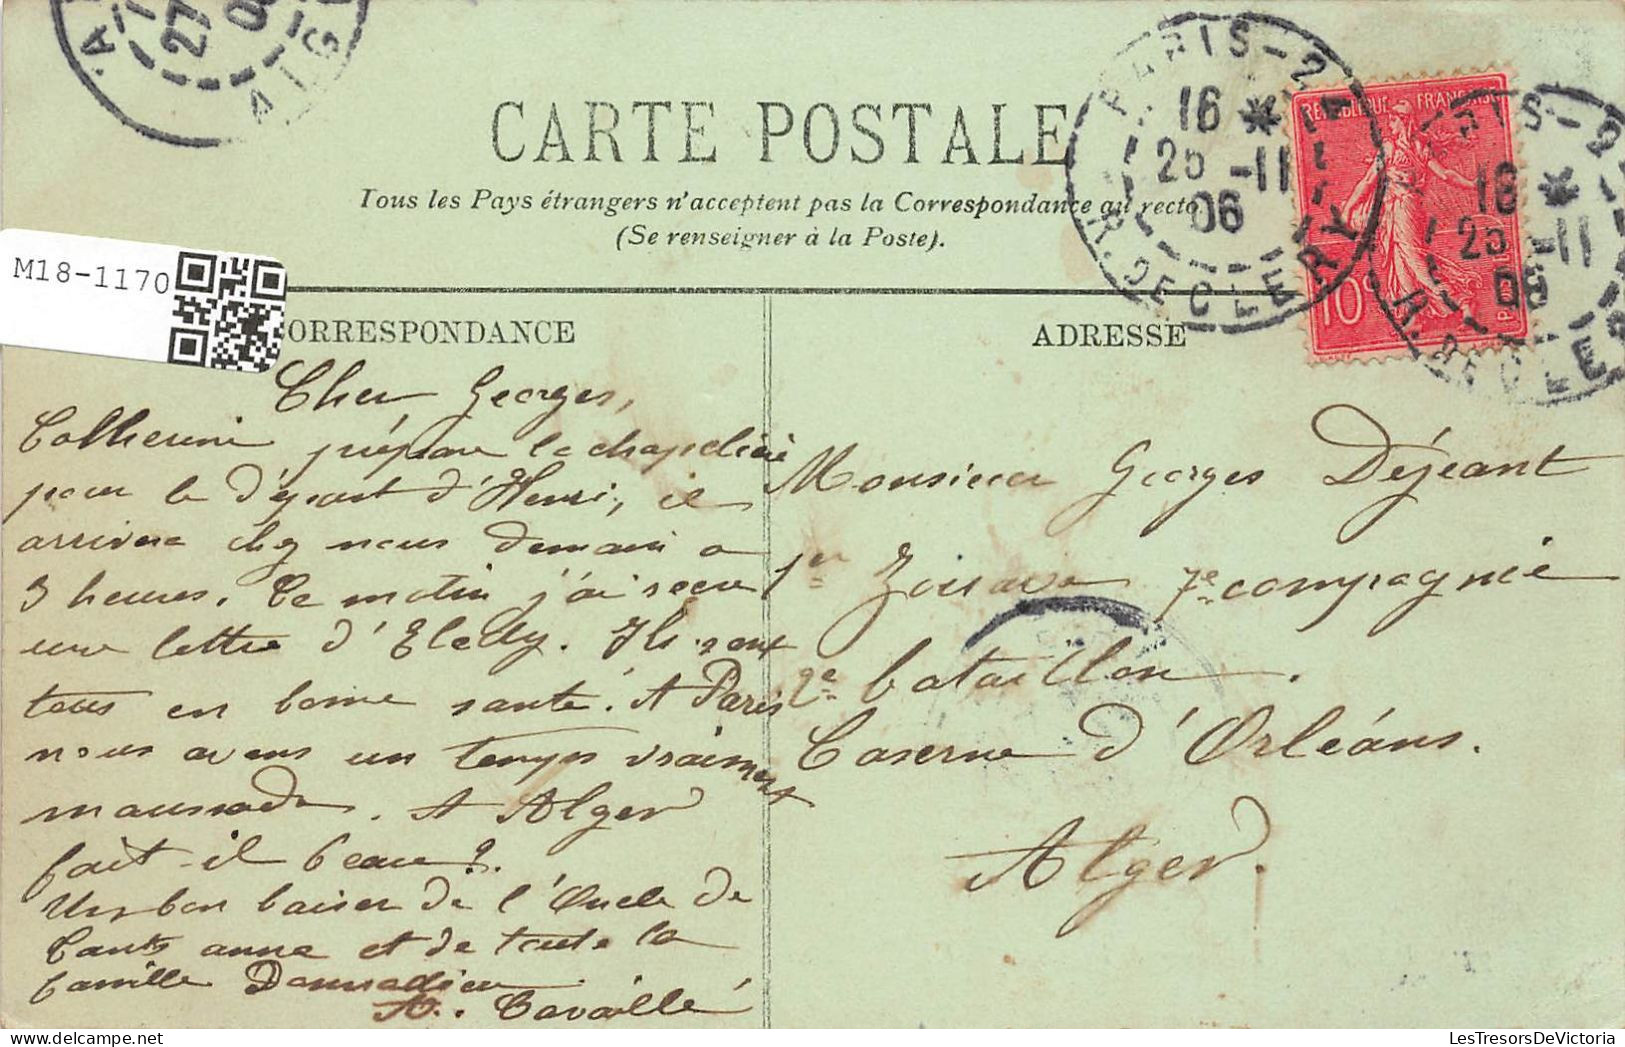 CARTE POSTALE
Tous les Pays étrangers n'acceptent pas la Correspondance au recto
(Se renseigner à la Poste).
M18-1170
ORRESPONDANCE
ADRESSE
PARIS-24
16 *
25 -11
06
R. DE CLERY
REPUBLIQUE FRANÇAISE
10c
PARIS-24
16 *
25 -11
06
R. DE CLE
27
Cher Georges,
Catherine prépare la chapelière
pour le départ d'Henri, il
arrivera chez nous demain a
3 heures. Ce matin j'ai reçu
une lettre d'. Ils sont
tous en bonne santé. A Paris
nous avons un temps vraiment
maussade. A Alger
fait-il beau?
Un bon baiser de l'Oncle de
Tante anna et de toute la
famille Donnadieu
A. Cavaillé
Monsieur Georges Déjeant
1er Zouave 7e compagnie
2e bataillon.
Caserne d'Orléans.
Alger.
LesTresorsDeVictoria.com